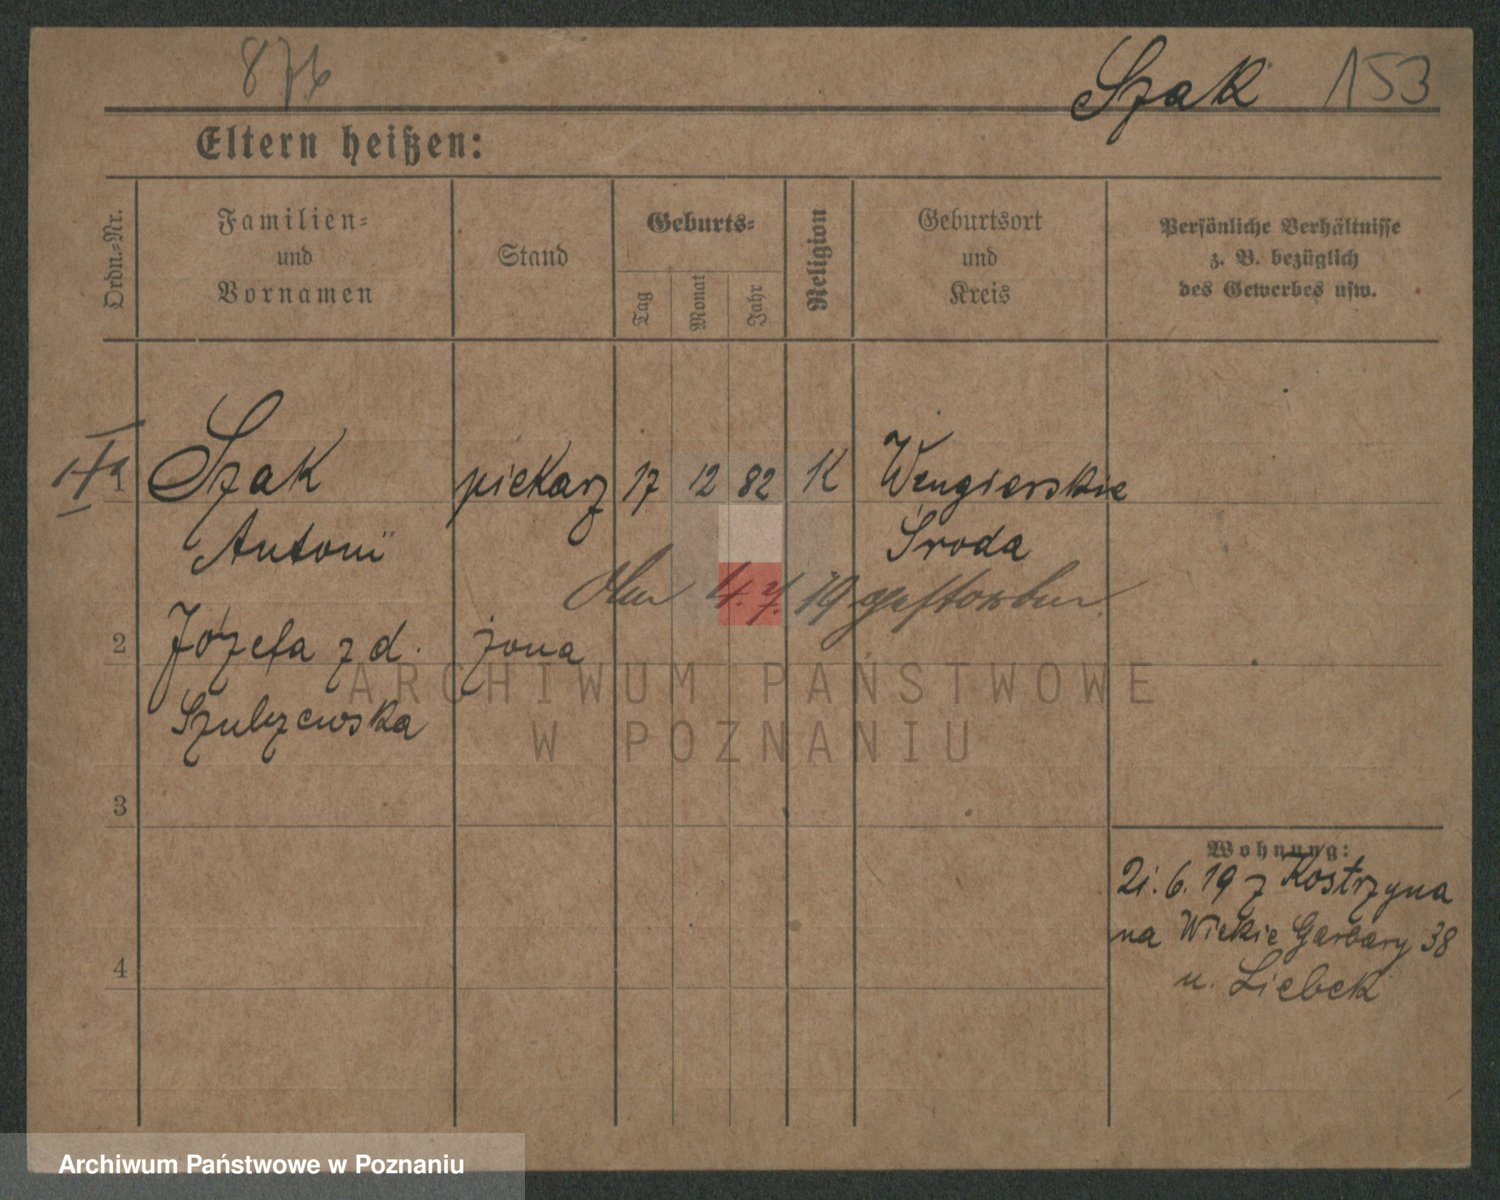 876
Szak 153
Eltern heißen:
Ordn.=Nr.
Familien=
und
Vornamen
Stand
Geburts=
Tag
Monat
Jahr
Religion
Geburtsort
und
Kreis
Persönliche Verhältnisse
z. B. bezüglich
des Gewerbes usw.
1 Szak piekarz 17 12 82 K Wengierskie
Antoni Środa
4. 7. 19 gestorben.
2 Józefa z d. żona
Szulczewska
ARCHIWUM PAŃSTWOWE
W POZNANIU
3
4
Wohnung:
21. 6. 19 z Kostrzyna
na Wielkie Garbary 38
u. Liebek
Archiwum Państwowe w Poznaniu